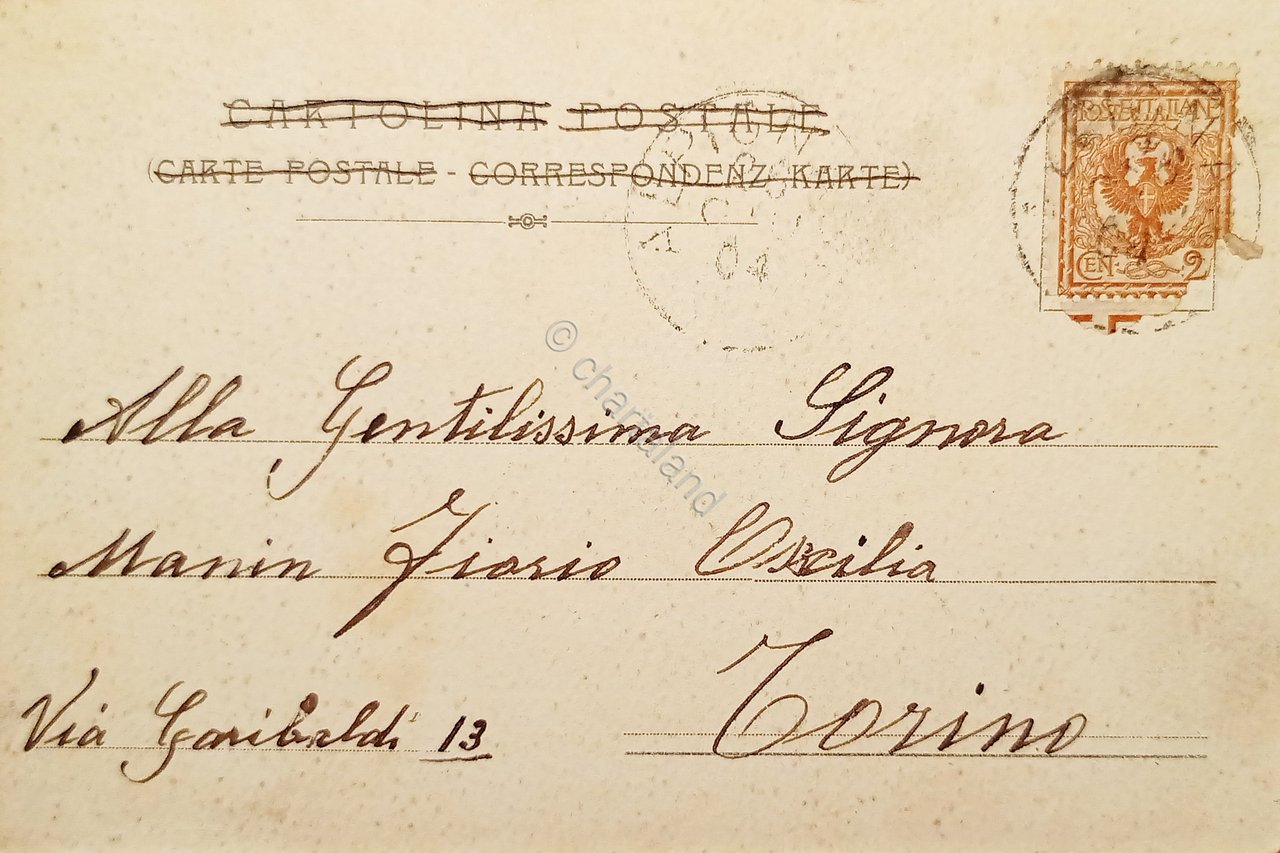 CARTOLINA POSTALE
(CARTE POSTALE - CORRESPONDENZ-KARTE)
POSTE ITALIANE
CENT. 2
04
© charäland
Alla Gentilissima Signora
Manin Fiorio
Torino
Via Garibaldi 13